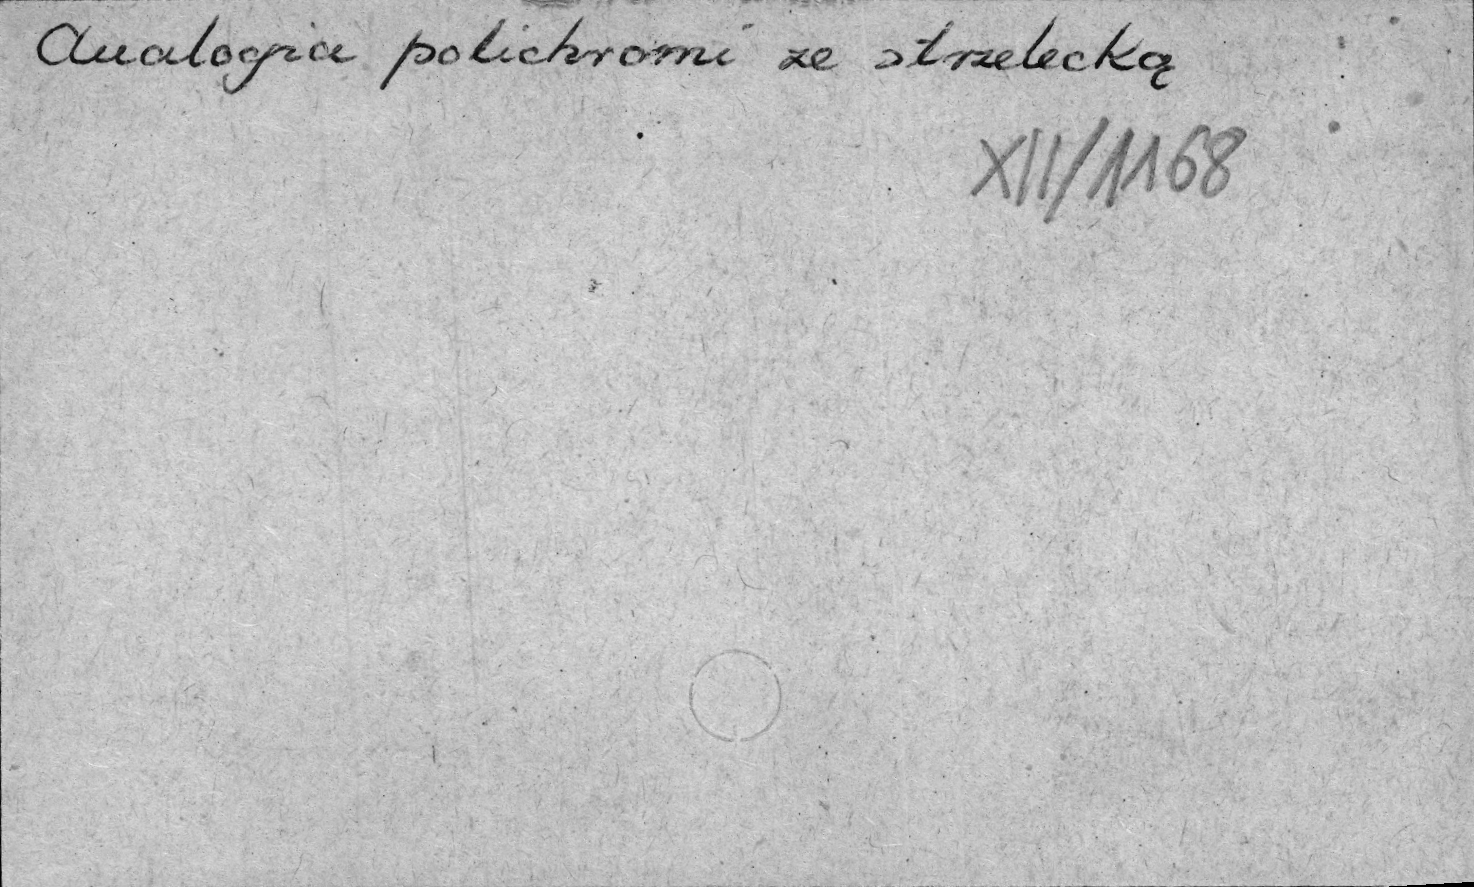 Analogia polichromi ze strzelecką
XII/1168